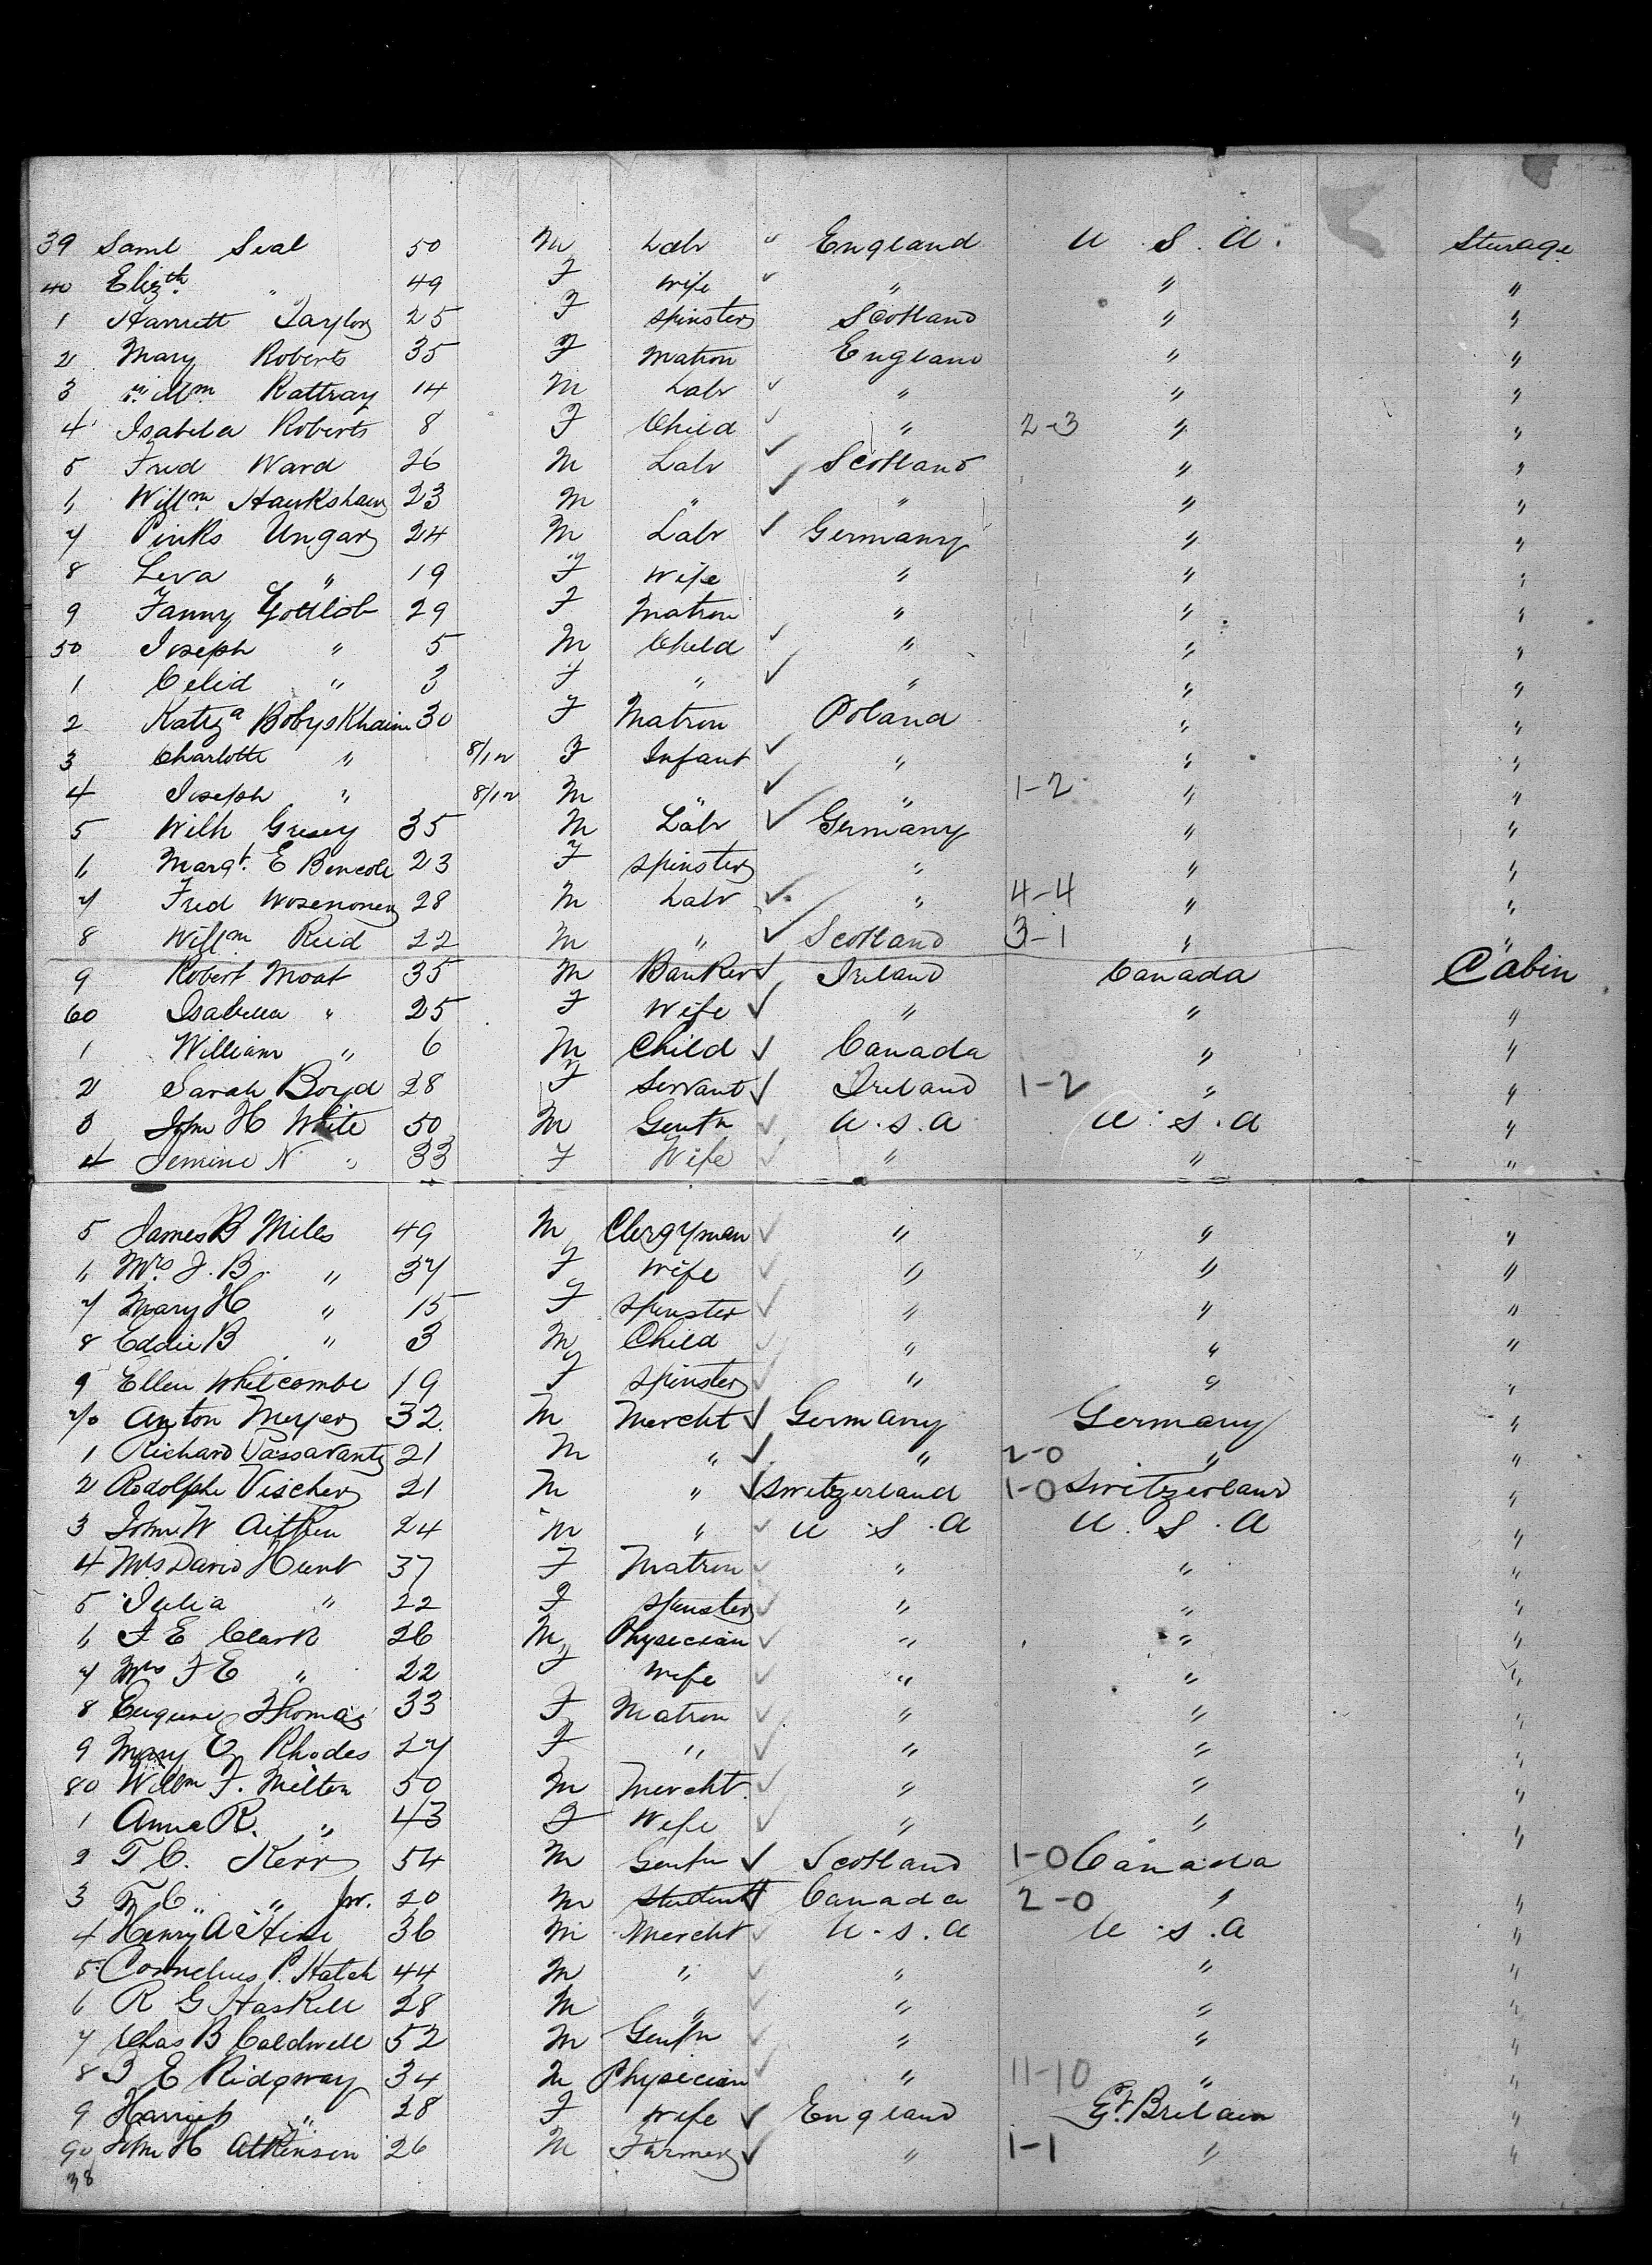 39 Saml Seal 50 M Labr England U.S.A. Sturage
40 Elizth " 49 F Wife " " "
1 Harriett Taylor 25 F Spinster Scotland " "
2 Mary Roberts 35 F Matron England " "
3 Wm Rattray 14 M Labr " " "
4 Isabela Roberts 8 F Child " 2-3 " "
5 Fred Ward 26 M Labr Scotland " "
6 Willm Hawkshaw 23 M " " " "
7 Pinks Ungar 24 M Labr Germany " "
8 Leva " 19 F Wife " " "
9 Fanny Gottlob 29 F Matron " " "
50 Joseph " 5 M Child " " "
1 Celid " 3 F " " " "
2 Katza Bobyskhaim 30 F Matron Poland " "
3 Charlotte " 8/12 F Infant " " "
4 Joseph " 8/12 M " " 1-2 " "
5 Wilh 35 M Labr Germany " "
6 Margt. E Bencole 23 F Spinster " " "
7 Fred 28 M Labr " 4-4 " "
8 Willm Reid 22 M " Scotland 3-1 " "
9 Robert Moat 35 M Banker Ireland Canada Cabin
60 Isabella " 25 F Wife " " "
1 William " 6 M Child Canada " "
2 Sarah Boyd 28 F Servant Ireland 1-2 " "
3 John H White 50 M Gentn U.S.A U.S.A "
4 Jemine N " 33 F Wife " " "
5 James B Miles 49 M Clergyman " " "
6 Mrs J.B. " 37 F Wife " " "
7 Mary H " 15 F Spinster " " "
8 Eddie B " 3 M Child " " "
9 Ellen Whitcombe 19 F Spinster " " "
70 Anton Meyer 32 M Mercht Germany Germany "
1 Richard Passavant 21 M " " 2-0 " "
2 Rodolphe Vischer 21 M " Switzerland 1-0 Switzerland "
3 John W Aitken 24 M " U.S.A U.S.A "
4 Mrs David Hunt 37 F Matron " " "
5 Julia " 22 F Spinster " " "
6 F E Clark 26 M Physician " " "
7 Mrs F E " 22 F Wife " " "
8 Eugene Thomas 33 F Matron " " "
9 Mary E Rhodes 27 F " " " "
80 Willm F. Milton 50 M Mercht. " " "
1 Anna R. " 43 F Wife " " "
2 T C. Kerr 54 M Gentn Scotland 1-0 Canada "
3 T. C. " Jr. 20 M Student Canada 2-0 " "
4 Henry A Hine 36 M Mercht U.S.A U.S.A "
5 Cornelius P. Hatch 44 M " " " "
6 R G Haskell 28 M " " " "
7 Chas B Caldwell 52 M Gentn " " "
8 E Ridgway 34 M Physician " 11-10 " "
9 Harriet " 28 F Wife England Gt. Britain "
90 John H Atkinson 26 M Farmer " 1-1 " "
38